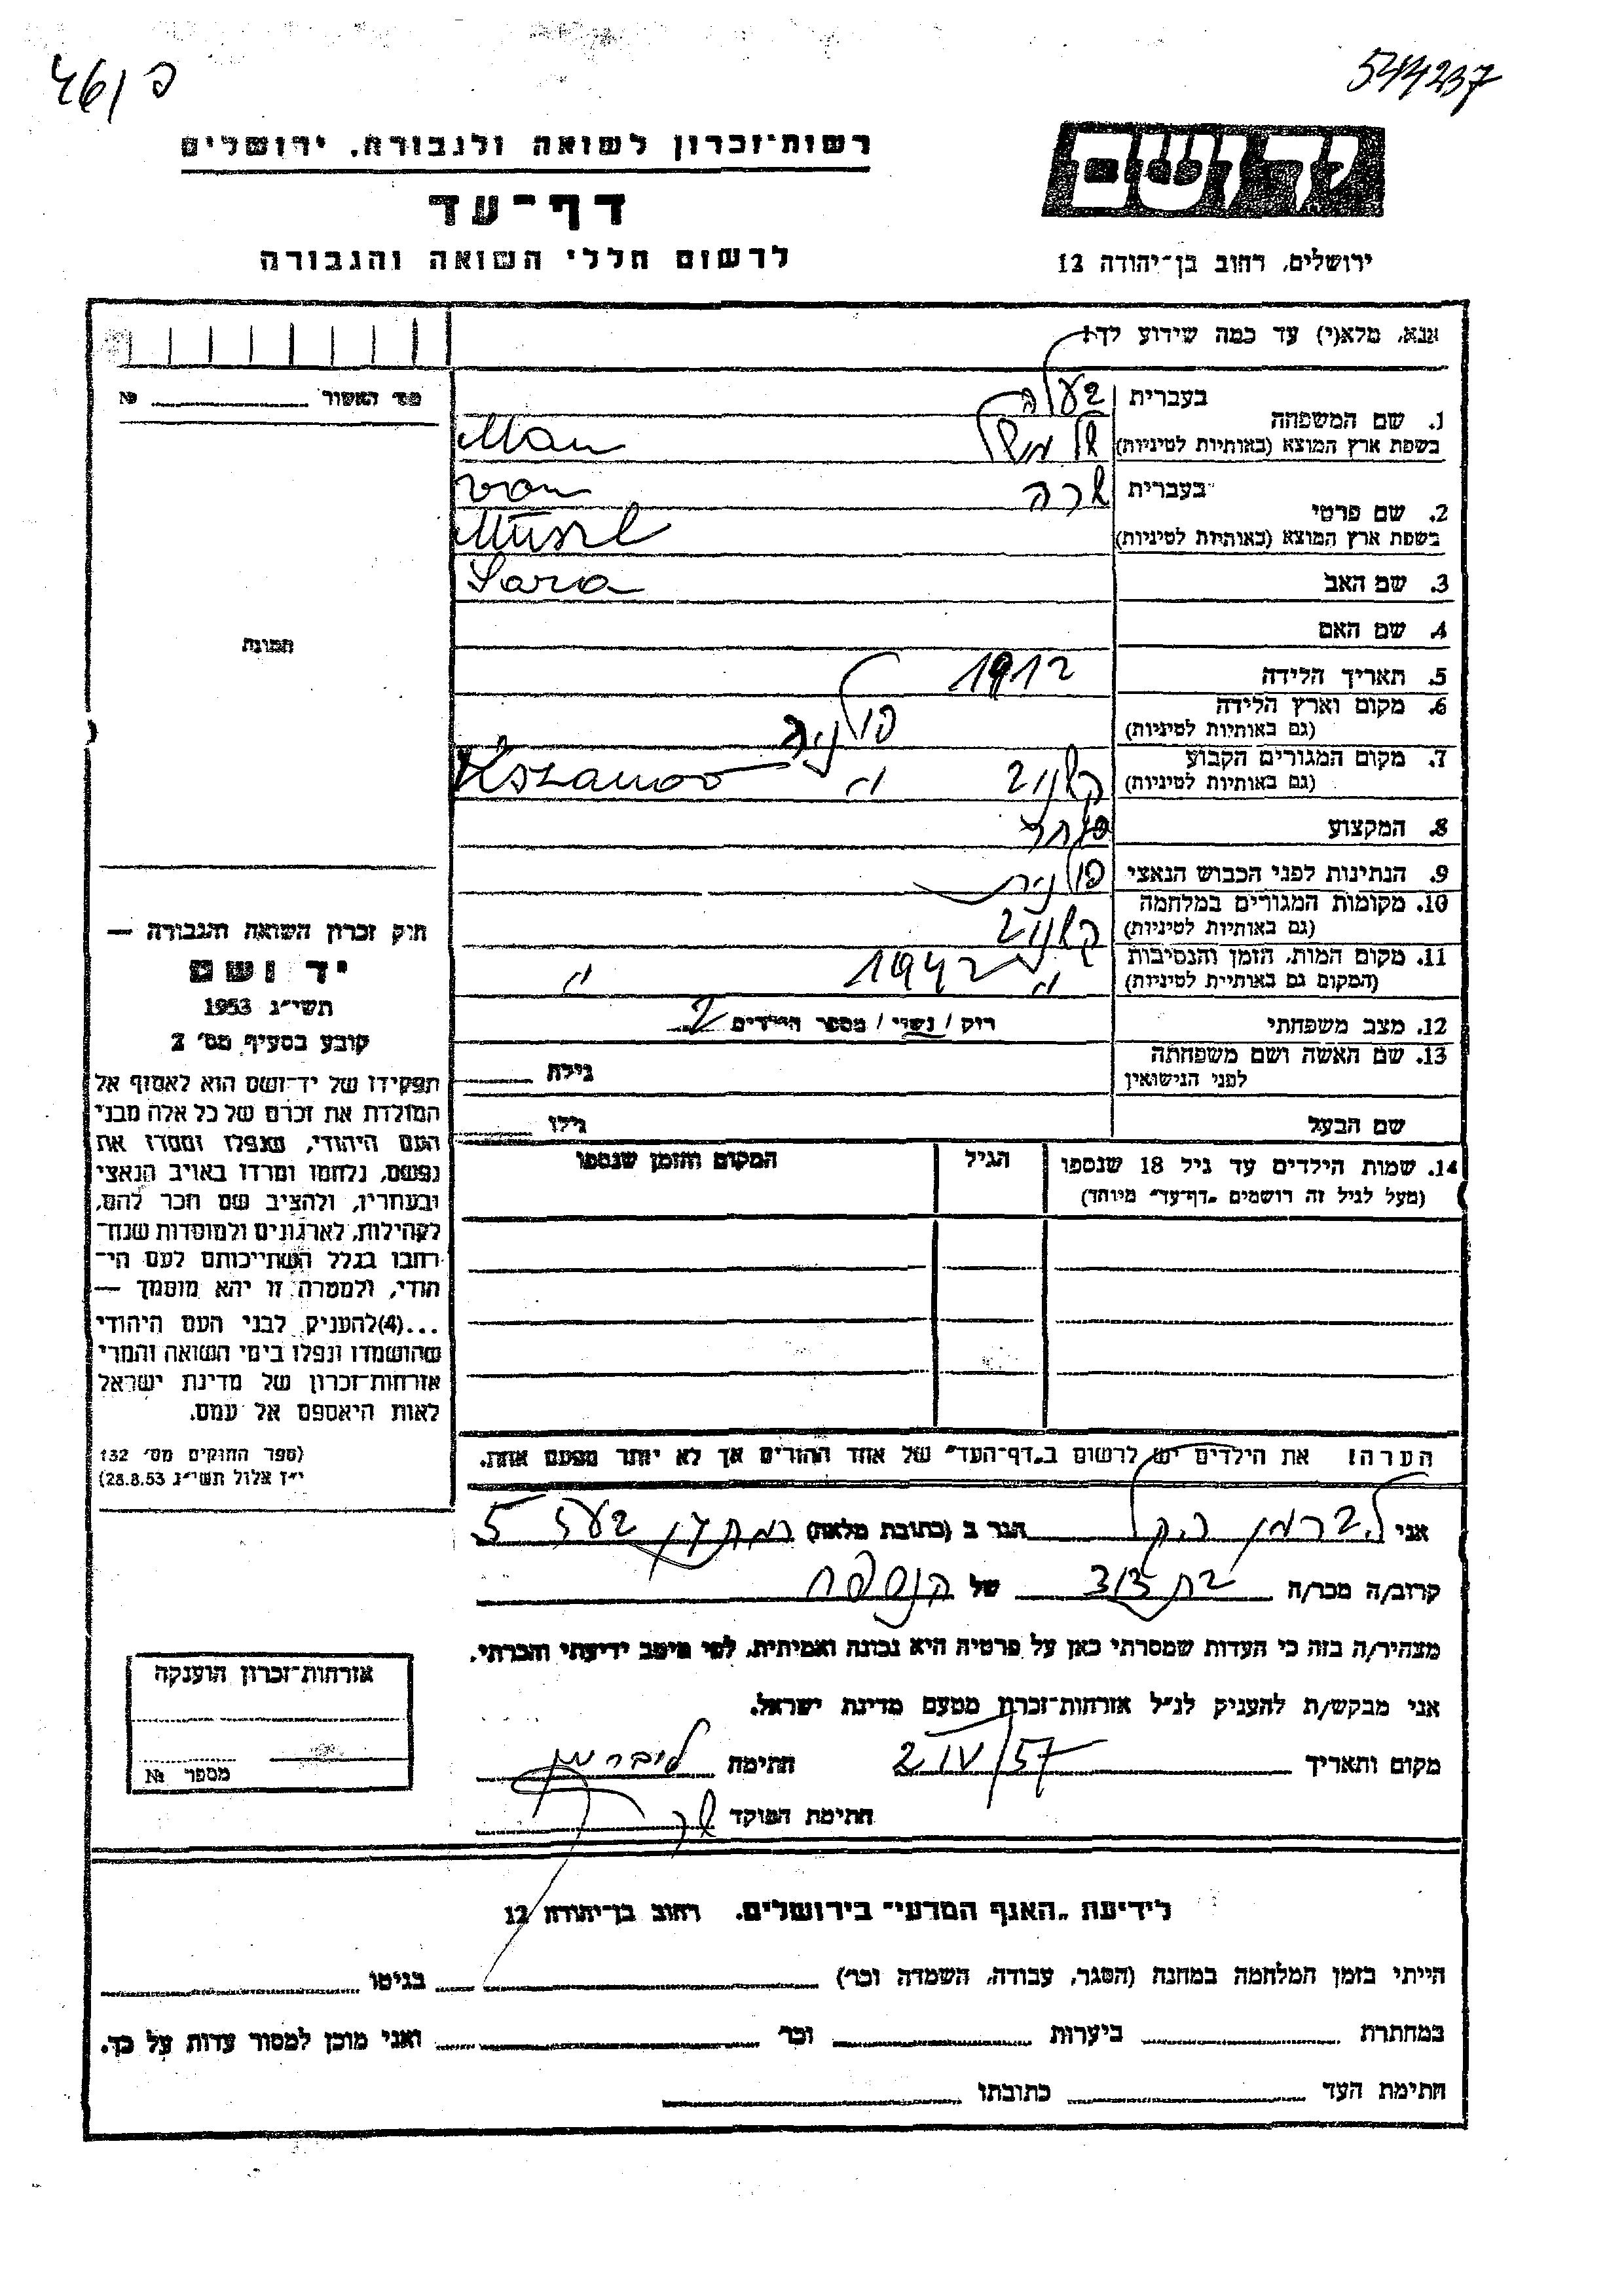 46/פ
544237
רשות־זכרון לשואה ולגבורה, ירושלים
דף־עד
לרשום חללי השואה והגבורה
יד ושם
ירושלים, רחוב בן־יהודה 12
אנא, מלא(י) עד כמה שידוע לך!
מס׳ האשור № 
1. שם המשפחה
בעברית
בעלה
של מישל
בשפת ארץ המוצא (באותיות לטיניות)
Man
von
2. שם פרטי
בעברית
שרה
בשפת ארץ המוצא (באותיות לטיניות)
Müsel
3. שם האב
Sara
4. שם האם
5. תאריך הלידה
1912
6. מקום וארץ הלידה
(גם באותיות לטיניות)
פולניה
7. מקום המגורים הקבוע
(גם באותיות לטיניות)
קשנוב
Kszanoo
8. המקצוע
סוחר
9. הנתינות לפני הכבוש הנאצי
פולנית
10. מקומות המגורים במלחמה
(גם באותיות לטיניות)
קשנוב
11. מקום המות, הזמן והנסיבות
(המקום גם באותיות לטיניות)
" 1942 "
12. מצב משפחתי
רוק / נשוי / מספר הילדים 2
13. שם האשה ושם משפחתה
לפני הנישואין
גילה
שם הבעל
גילו
14. שמות הילדים עד גיל 18 שנספו
(מעל לגיל זה רושמים „דף־עד" מיוחד)
הגיל
המקום והזמן שנספו
הערה! את הילדים יש לרשום ב„דף־העד" של אחד ההורים אך לא יותר מפעם אחת.
תמונה
חוק זכרון השואה והגבורה —
יד ושם
תשי״ג 1953
קובע בסעיף מס׳ 2
תפקידו של יד־ושם הוא לאסוף אל
המולדת את זכרם של כל אלה מבני
העם היהודי, שנפלו ומסרו את
נפשם, נלחמו ומרדו באויב הנאצי
ובעוזריו, ולהציב שם וזכר להם,
לקהילות, לארגונים ולמוסדות שנח־
רבו בגלל השתייכותם לעם הי־
הודי, ולמטרה זו יהא מוסמך —
...(4)להעניק לבני העם היהודי
שהושמדו ונפלו בימי השואה והמרי
אזרחות־זכרון של מדינת ישראל
לאות היאספם אל עמם.
(ספר החוקים מס׳ 132
י״ז אלול תשי״ג 28.8.53)
אני ליברמן הגר ב (כתובת מלאה) 5
קרוב/ה מכר/ה בת דודה של הנספה
מצהיר/ה בזה כי העדות שמסרתי כאן על פרטיה היא נכונה ואמיתית, לפי מיטב ידיעתי והכרתי.
אני מבקש/ת להעניק לנ״ל אזרחות־זכרון מטעם מדינת ישראל.
מקום ותאריך 2 IV/57 חתימה ליברמן
חתימת הפוקד
אזרחות־זכרון הוענקה
מספר №
לידיעת „האגף המדעי" בירושלים. רחוב בן־יהודה 12
הייתי בזמן המלחמה במחנה (הסגר, עבודה, השמדה וכו׳) בגיטו
במחתרת ביערות וכו׳ ואני מוכן למסור עדות על כך.
חתימת העד כתובתו